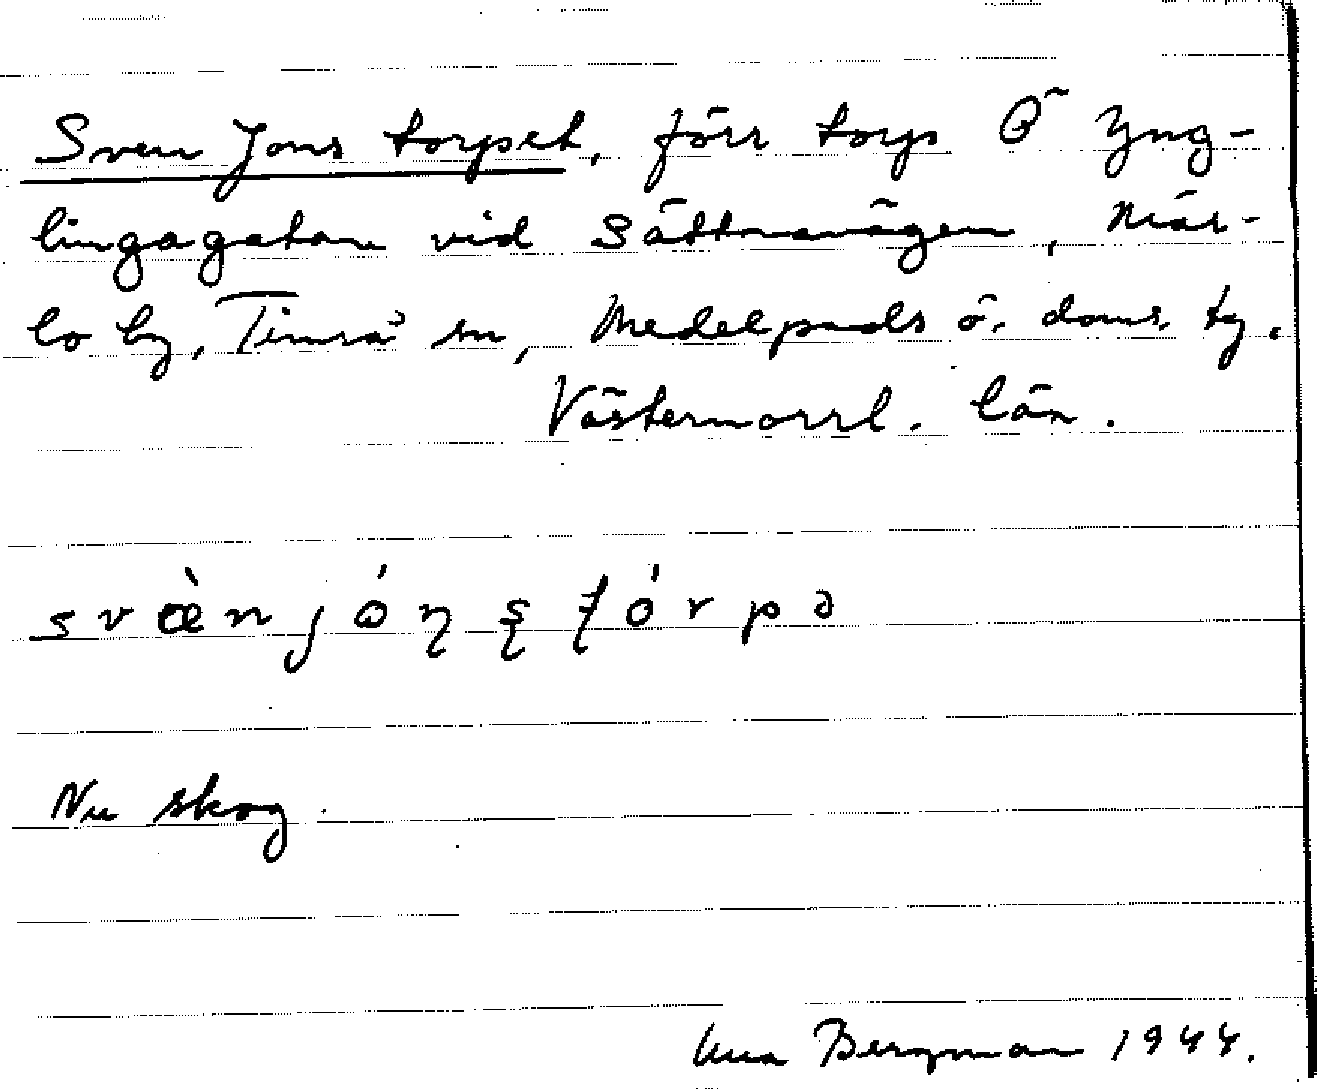 Sven Jons torpet, förr torp Ö Yng-
lingagatan vid Sättnavägen, Mär-
lo by, Timrå sn, Medelpads ö. doms. tg.
Västernorrl. län.
svæ̀njóɳʂʈórpə
Nu skog.
Bergman 1944.